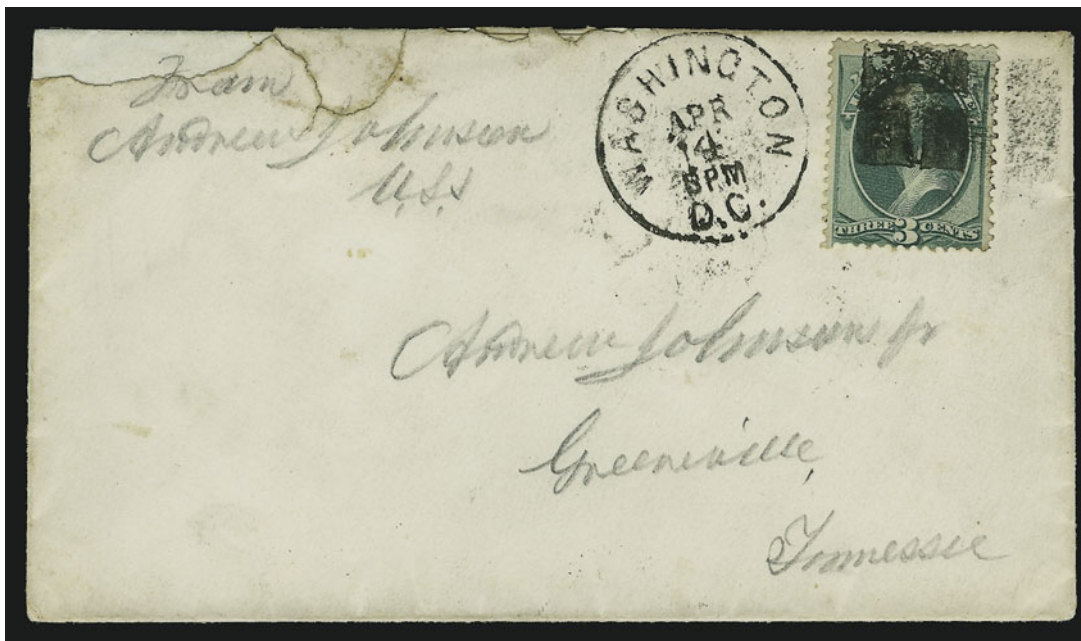 From
Andrew Johnson
U.S.S
WASHINGTON
APR
14
D.C.
THREE 3 CENTS
Andrew Johnson Jr
Greeneville,
Tennessee